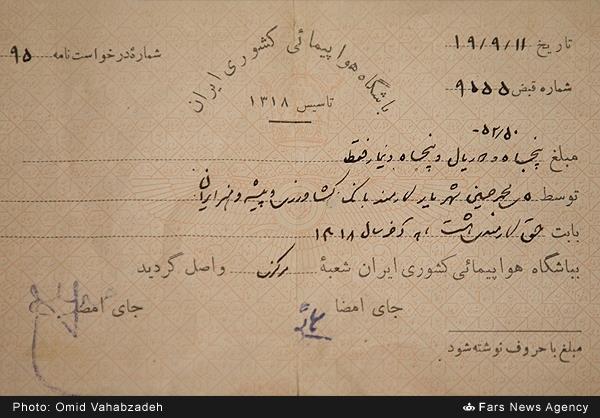 باشگاه هواپیمائی کشوری ایران
تاسیس ۱۳۱۸
تاریخ ۱۹/۹/۱۱
شمارهٔ درخواست نامه ۹۵
شماره قبض ۹۱۵۵
۵۲/۵۰-
مبلغ پنجاه و دو ریال و پنجاه دینار فقط
توسط محمدحسین شهریار کارمند بانک کشاورزی و پیشه و هنر ایران
بابت حق کارمندی هشت آخر سال ۱۳۱۸
بباشگاه هواپیمائی کشوری ایران شعبهٔ مرکز واصل گردید
جای امضا جای امضا
مبلغ با حروف نوشته شود
Photo: Omid Vahabzadeh
Fars News Agency